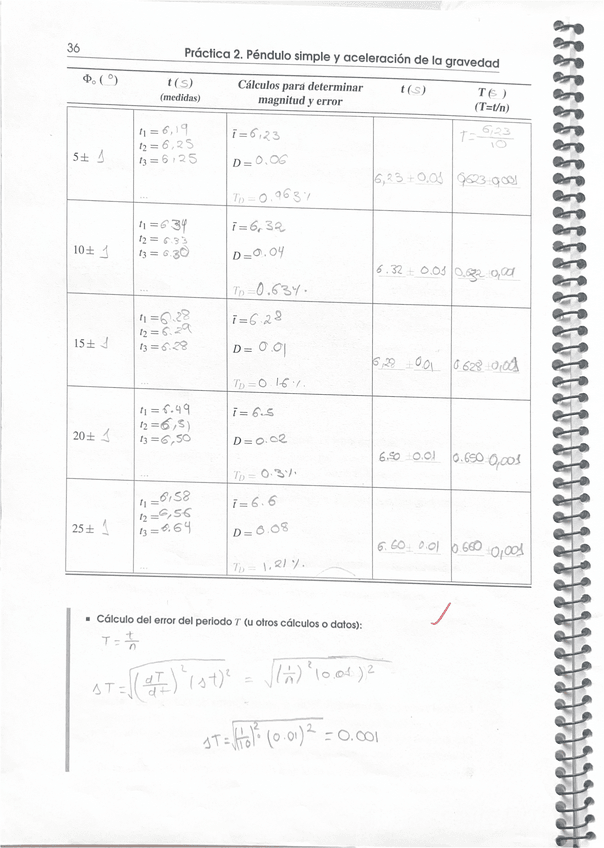 36
Práctica 2. Péndulo simple y aceleración de la gravedad
Φ₀ (°)
t (s)
(medidas)
Cálculos para determinar
magnitud y error
t (s)
T (s)
(T=t/n)
5± 1
t₁ = 6,19
t₂ = 6,25
t₃ = 6,25
...
t̄ = 6,23
D = 0.06
T_D = 0.963%
6,23 ± 0.01
T = 6,23/10
0,623 ± 0,001
10± 1
t₁ = 6.34
t₂ = 6.33
t₃ = 6.30
...
t̄ = 6,32
D = 0.04
T_D = 0.634.
6.32 ± 0.01
0.632 ± 0,001
15± 1
t₁ = 6.28
t₂ = 6.29
t₃ = 6.28
...
t̄ = 6.28
D = 0.01
T_D = 0.16%
6,28 ± 0,01
0.628 ± 0,001
20± 1
t₁ = 6.49
t₂ = 6,51
t₃ = 6,50
...
t̄ = 6.5
D = 0.02
T_D = 0.3%
6.50 ± 0.01
0.650 0,001
25± 1
t₁ = 6,58
t₂ = 6,56
t₃ = 6.64
...
t̄ = 6.6
D = 0.08
T_D = 1.21%
6.60 ± 0.01
0.660 ± 0,001
▪ Cálculo del error del periodo T (u otros cálculos o datos):
T = t/n
ΔT = √((dT/dt)² (Δt)²) = √((1/n)² (0.01)²)
ΔT = √((1/10)² · (0.01)²) = 0.001